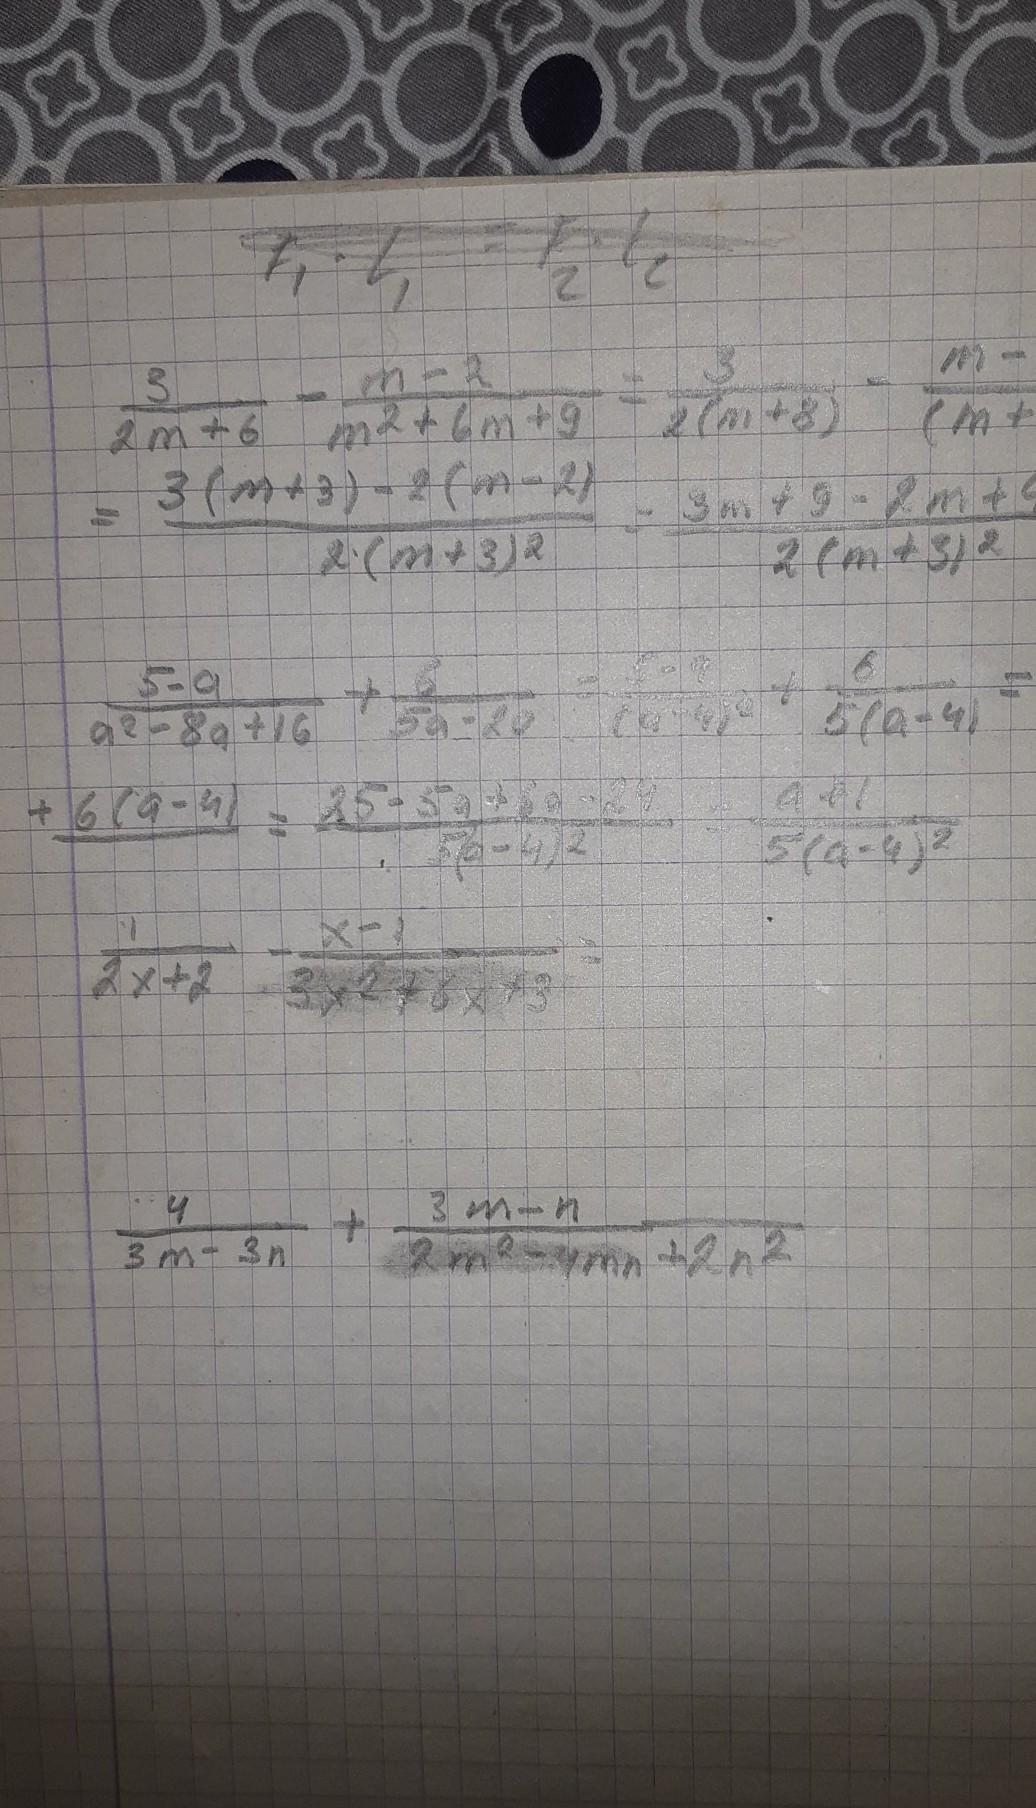 F₁ · l₁ = F₂ · l₂
3/(2m+6) - (m-2)/(m²+6m+9) = 3/(2(m+3)) - (m-/(m+
= (3(m+3)-2(m-2))/(2·(m+3)²) = (3m+9-2m+4/(2(m+3)²
(5-a)/(a²-8a+16) + 6/(5a-20) = (5-a)/(a-4)² + 6/(5(a-4)) =
+ 6(a-4) = (25-5a+6a-24)/(5(a-4)²) = (a+1)/(5(a-4)²)
1/(2x+2) - (x-1)/(3x²+6x+3) =
4/(3m-3n) + (3m-n)/(2m²-4mn+2n²)